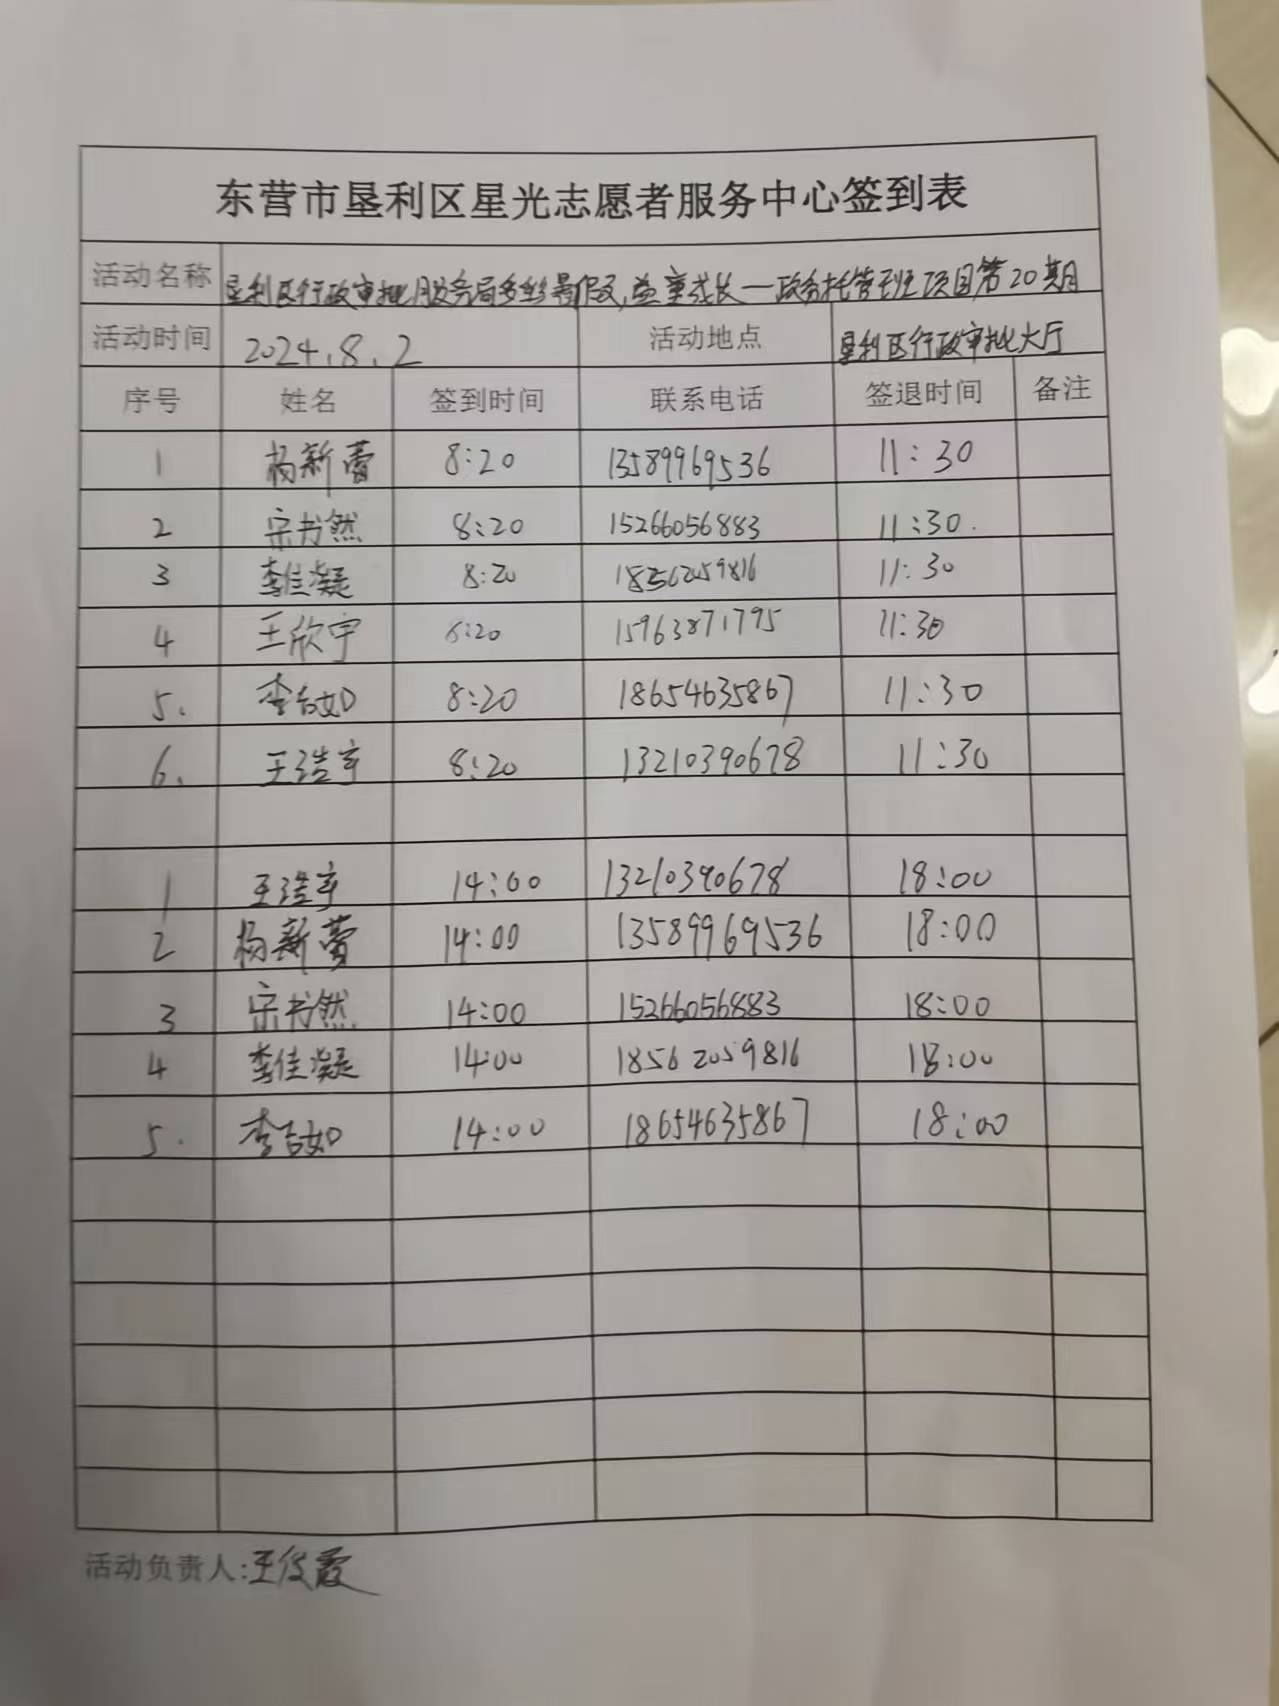 东营市垦利区星光志愿者服务中心签到表
活动名称 垦利区行政审批服务局多彩暑假,益童成长—政务托管班项目第20期
活动时间 2024.8.2 活动地点 垦利区行政审批大厅
序号 姓名 签到时间 联系电话 签退时间 备注
1 杨新蕾 8:20 13589969536 11:30
2 宋书然 8:20 15266056883 11:30.
3 李佳凝 8:20 18562059816 11:30
4 王欣宇 8:20 15963871795 11:30
5. 李喆如 8:20 18654635867 11:30
6. 王浩宇 8:20 13210390678 11:30
1 王浩宇 14:00 13210390678 18:00
2 杨新蕾 14:00 13589969536 18:00
3 宋书然 14:00 15266056883 18:00
4 李佳凝 14:00 18562059816 18:00
5. 李喆如 14:00 18654635867 18:00
活动负责人:王俊霞